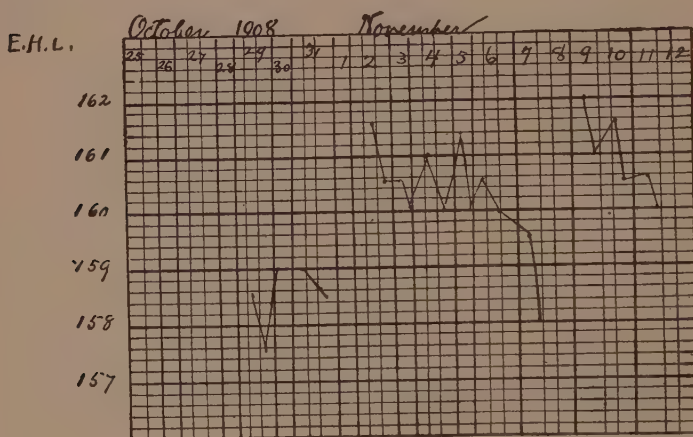 October 1908 November
E.H.L.
25 26 27 28 29 30 31 1 2 3 4 5 6 7 8 9 10 11 12
162
161
160
159
158
157